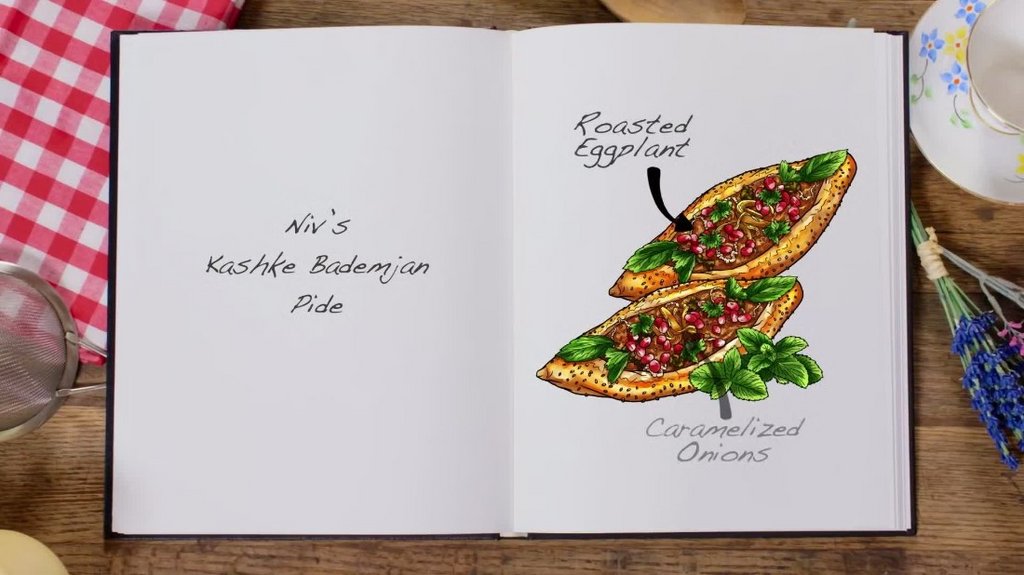 Niv's
Kashke Bademjan
Pide
Roasted
Eggplant
Caramelized
Onions